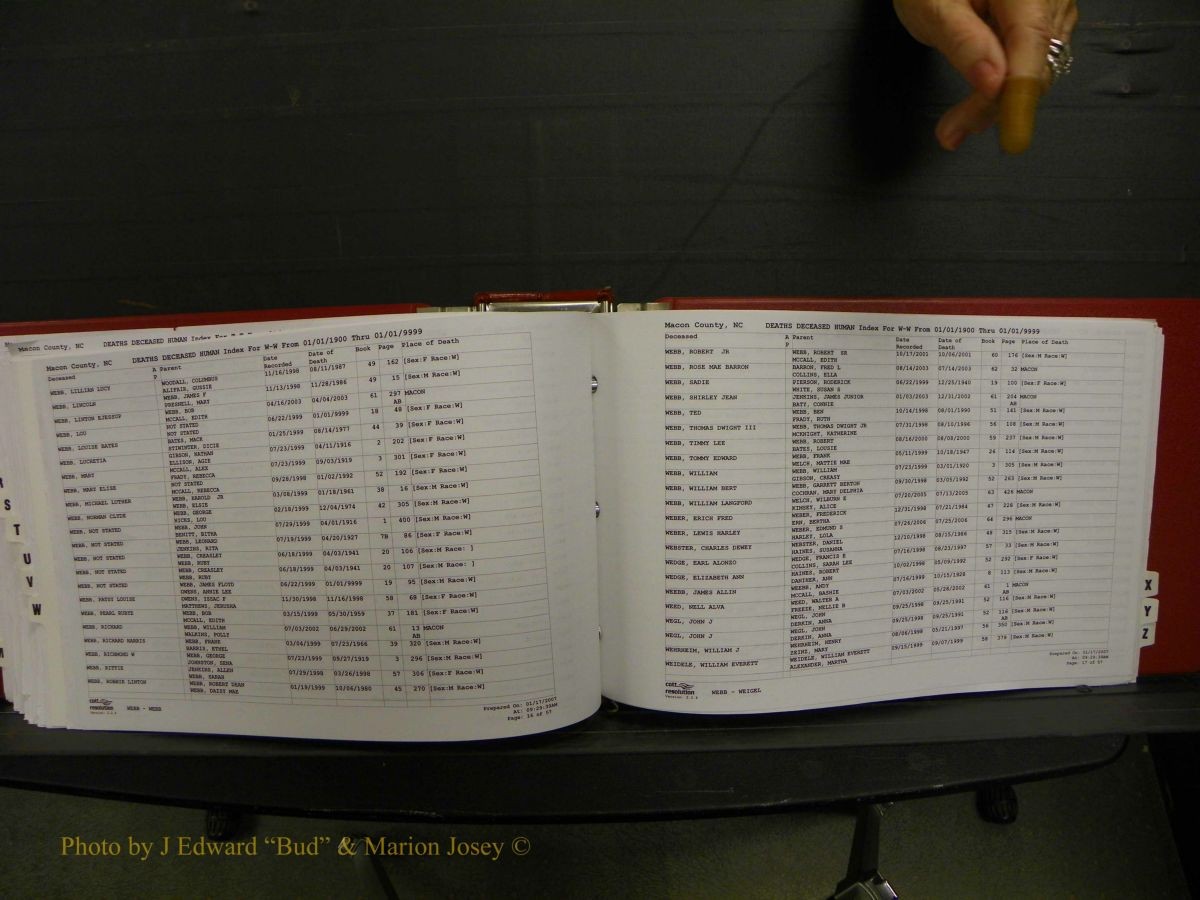 Macon County, NC DEATHS DECEASED HUMAN Index For W-W From 01/01/1900 Thru 01/01/9999
Deceased A Parent Date Recorded Date of Death Book Page Place of Death
P
WEBB, LILLIAN LUCY WOODALL, COLUMBUS 11/16/1998 08/11/1987 49 162 [Sex:F Race:W]
ALIFAIR, GUSSIE
WEBB, LINCOLN WEBB, JAMES F 11/13/1998 11/28/1986 49 15 [Sex:M Race:W]
PRESNELL, MARY
WEBB, LINTON EJESSUP WEBB, BOB 04/16/2003 04/04/2003 61 297 MACON
MCCALL, EDITH AB
WEBB, LOU NOT STATED 06/22/1999 01/01/9999 18 48 [Sex:F Race:W]
NOT STATED
WEBB, LOUISE BATES BATES, MACK 01/25/1999 08/14/1977 44 39 [Sex:F Race:W]
STIWINTER, DICIE
WEBB, LUCRETIA GIBSON, NATHAN 07/23/1999 04/11/1916 2 202 [Sex:F Race:W]
ELLISON, AGIE
WEBB, MARY MCCALL, ALEX 07/23/1999 09/03/1919 3 301 [Sex:F Race:W]
FRADY, REBECCA
WEBB, MARY ELISE NOT STATED 09/28/1998 01/02/1992 52 192 [Sex:F Race:W]
MCCALL, REBECCA
WEBB, MICHAEL LUTHER WEBB, HAROLD JR 03/08/1999 01/18/1961 38 16 [Sex:M Race:W]
WEBB, ELSIE
WEBB, NORMAN CLYDE WEBB, GEORGE 02/18/1999 12/04/1974 42 305 [Sex:M Race:W]
HICKS, LOU
WEBB, NOT STATED WEBB, JOHN 07/29/1999 04/01/1916 1 400 [Sex:M Race:W]
BENITT, BITRA
WEBB, NOT STATED WEBB, LEONARD 07/19/1999 04/20/1927 7B 86 [Sex:F Race:W]
JENKINS, RITA
WEBB, NOT STATED WEBB, CREASLEY 06/18/1999 04/03/1941 20 106 [Sex:M Race: ]
WEBB, RUBY
WEBB, NOT STATED WEBB, CREASLEY 06/18/1999 04/03/1941 20 107 [Sex:M Race: ]
WEBB, RUBY
WEBB, NOT STATED WEBB, JAMES FLOYD 06/22/1999 01/01/9999 19 95 [Sex:M Race:W]
OWENS, ANNIE LEE
WEBB, PATSY LOUISE OWENS, ISSAC F 11/30/1998 11/16/1998 58 68 [Sex:F Race:W]
MATTHEWS, JERUSHA
WEBB, PEARL RUSTE WEBB, BOB 03/15/1999 05/30/1959 37 181 [Sex:F Race:W]
MCCALL, EDITH
WEBB, RICHARD WEBB, WILLIAM 07/03/2002 06/29/2002 61 13 MACON
WALKINS, POLLY AB
WEBB, RICHARD HARRIS WEBB, FRANK 03/04/1999 07/23/1966 39 320 [Sex:M Race:W]
HARRIS, ETHEL
WEBB, RICHMOND W WEBB, GEORGE 07/23/1999 09/27/1919 3 296 [Sex:M Race:W]
JOHNSTON, SENA
WEBB, RITTIE JENKINS, ALLEN 07/29/1998 03/26/1998 57 306 [Sex:F Race:W]
WEBB, SARAH
WEBB, ROBBIE LINTON WEBB, ROBERT DEAN 01/19/1999 10/06/1980 45 270 [Sex:M Race:W]
WEBB, DAISY MAE
cott resolution
WEBB - WEBB
Prepared On: 01/17/2007
At: 09:29:39AM
Page: 16 of 57
Macon County, NC DEATHS DECEASED HUMAN Index For W-W From 01/01/1900 Thru 01/01/9999
Deceased A Parent Date Recorded Date of Death Book Page Place of Death
P
WEBB, ROBERT JR WEBB, ROBERT SR 10/17/2001 10/06/2001 60 176 [Sex:M Race:W]
MCCALL, EDITH
WEBB, ROSE MAE BARRON BARRON, FRED L 08/14/2003 07/14/2003 62 32 MACON
COLLINS, ELLA
WEBB, SADIE PIERSON, RODERICK 06/22/1999 12/25/1940 19 100 [Sex:F Race:W]
WHITE, SUSAN S
WEBB, SHIRLEY JEAN JENKINS, JAMES JUNIOR 01/03/2003 12/31/2002 61 204 MACON
BATY, CONNIE AB
WEBB, TED WEBB, BEN 10/14/1998 08/01/1990 51 141 [Sex:M Race:W]
FRADY, RUTH
WEBB, THOMAS DWIGHT III WEBB, THOMAS DWIGHT JR 07/31/1998 08/10/1996 56 108 [Sex:M Race:W]
MCKNIGHT, KATHERINE
WEBB, TIMMY LEE WEBB, ROBERT 08/16/2000 08/08/2000 59 237 [Sex:M Race:W]
BATES, LOUSIE
WEBB, TOMMY EDWARD WEBB, FRANK 05/11/1999 10/18/1947 26 114 [Sex:M Race:W]
WELCH, MATTIE MAE
WEBB, WILLIAM WEBB, WILLIAM 07/23/1999 03/01/1920 3 305 [Sex:M Race:W]
GIBSON, CREASY
WEBB, WILLIAM BERT WEBB, GARRETT BERTON 09/30/1998 03/05/1992 52 263 [Sex:M Race:W]
COCHRAN, MARY DELPHIA
WEBB, WILLIAM LANGFORD WELCH, WILBURN E 07/20/2005 07/13/2005 63 425 MACON
KIMSEY, ALICE
WEBER, ERICH FRED WEBER, FREDERICK 12/31/1998 07/21/1984 47 228 [Sex:M Race:W]
ERN, BERTHA
WEBER, LEWIS HARLEY WEBER, EDMUND S 07/26/2006 07/25/2006 64 296 MACON
HARLEY, LOLA
WEBSTER, CHARLES DEWEY WEBSTER, DANIEL 12/10/1998 08/15/1986 48 315 [Sex:M Race:W]
HAINES, SUSANNA
WEDGE, EARL ALONZO WEDGE, FRANCIS E 07/16/1998 08/23/1997 57 33 [Sex:M Race:W]
COLLINS, SARAH LEE
WEDGE, ELIZABETH ANN HAINES, ROBERT 10/02/1998 05/09/1992 52 292 [Sex:F Race:W]
DANIHER, ANN
WEEBB, JAMES ALLIN WEEBB, ANDY 07/16/1999 10/15/1928 8 113 [Sex:M Race:W]
MCCALL, BASHIE
WEED, NELL ALVA WEED, WALTER A 07/03/2002 05/28/2002 61 1 MACON
FREEZE, NELLIE B AB
WEGL, JOHN J WEGL, JOHN 09/25/1998 09/25/1991 52 116 [Sex:M Race:W]
DERKIN, ANNA
WEGL, JOHN J WEGL, JOHN 09/25/1998 09/25/1991 52 116 [Sex:M Race:W]
DERKIN, ANNA AB
WEHRHEIM, WILLIAM J WEHRHEIM, HENRY 08/06/1998 05/21/1997 56 350 [Sex:M Race:W]
ZEINZ, MARY
WEIDELE, WILLIAM EVERETT WEIDELE, WILLIAM EVERETT 09/15/1999 09/07/1999 58 379 [Sex:M Race:W]
ALEXANDER, MARTHA
cott resolution
WEBB - WEIGEL
Prepared On: 01/17/2007
At: 09:29:39AM
Page: 17 of 57
S
T
U
V
W
X
Y
Z
Photo by J Edward “Bud” & Marion Josey ©